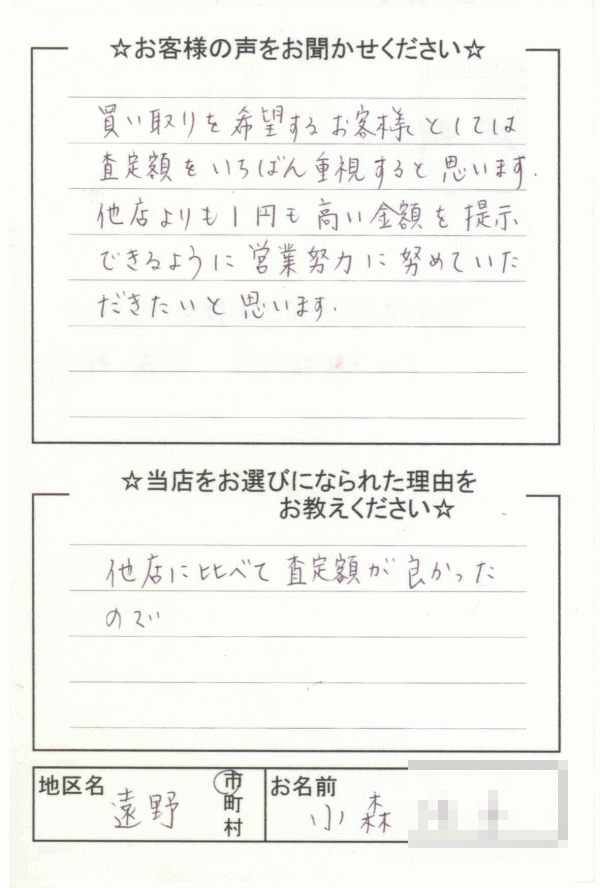 ☆お客様の声をお聞かせください☆
買い取りを希望するお客様としては
査定額をいちばん重視すると思います.
他店よりも1円も高い金額を提示
できるように営業努力に努めていた
だきたいと思います.
☆当店をお選びになられた理由を
お教えください☆
他店に比べて査定額が良かった
ので
地区名 遠野 市町村 お名前 小森